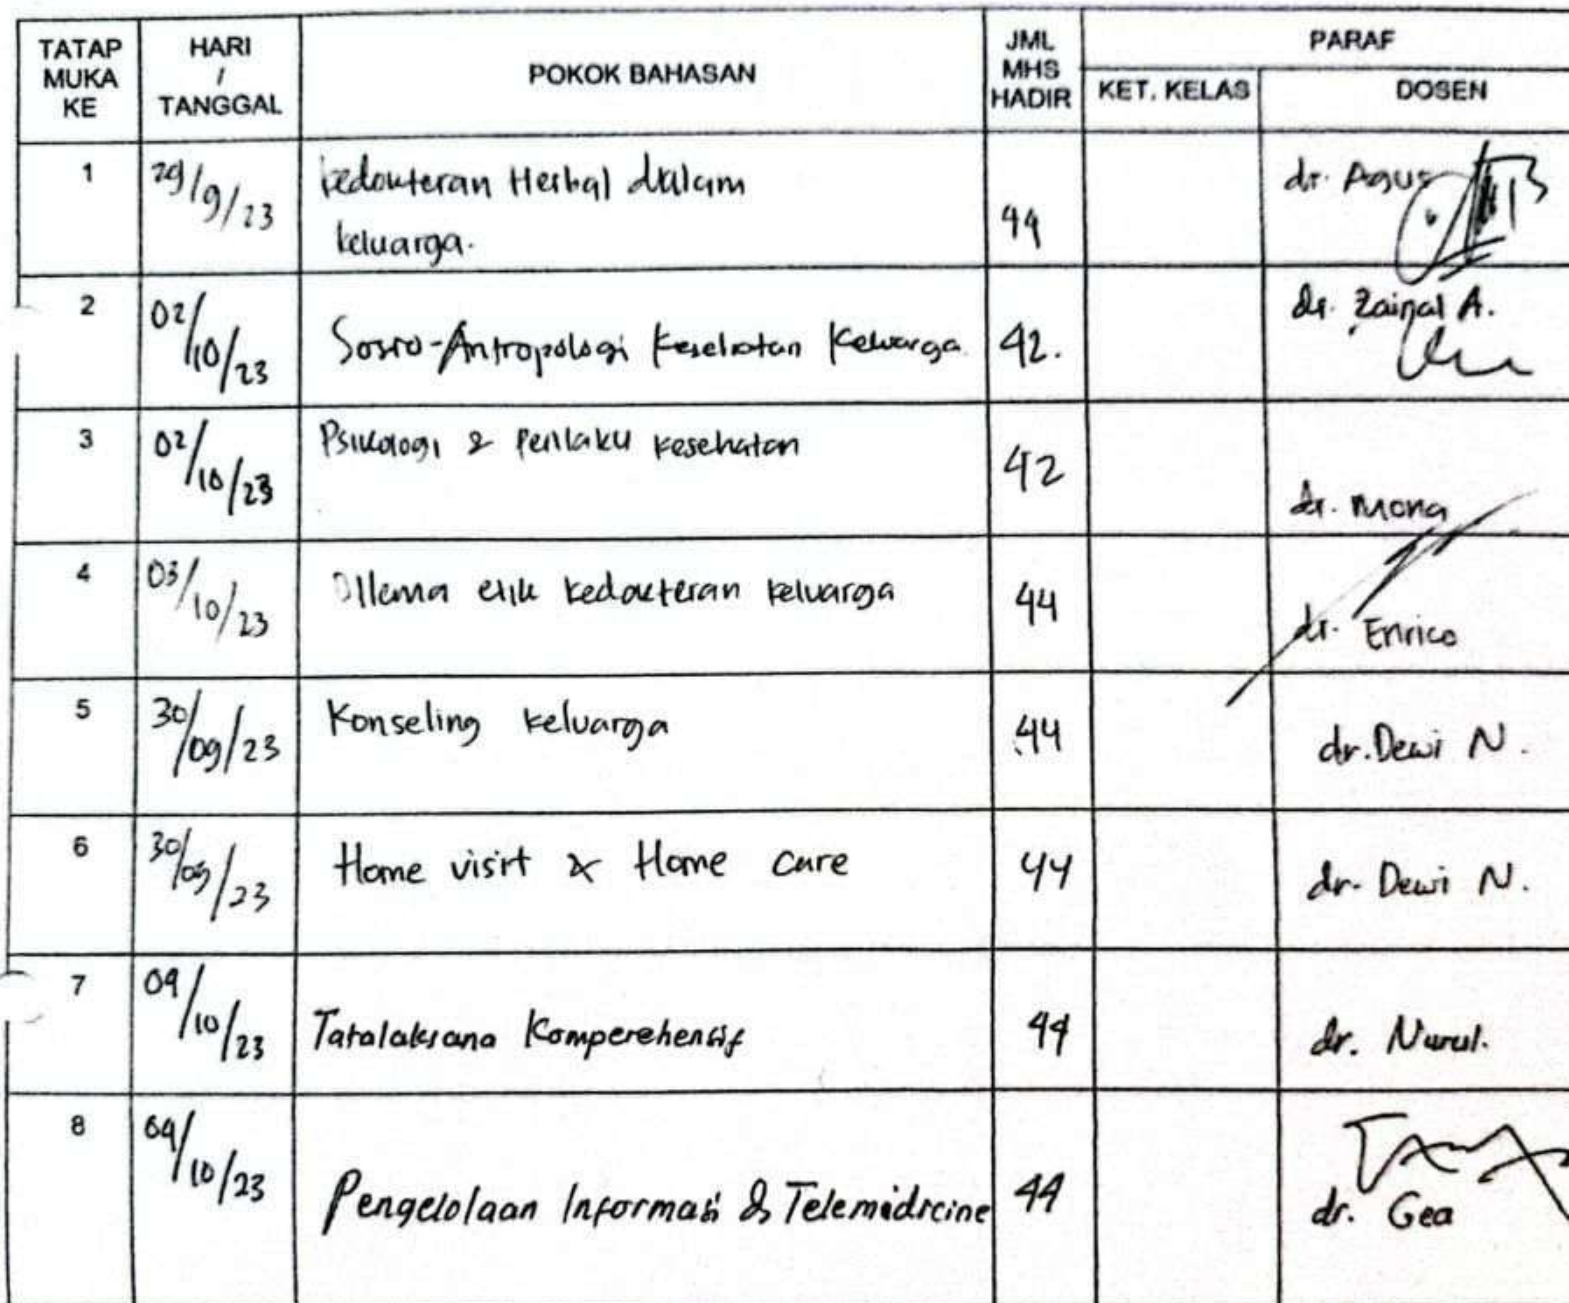 TATAP MUKA KE HARI / TANGGAL POKOK BAHASAN JML MHS HADIR PARAF
KET. KELAS DOSEN
1 29/9/23 kedokteran Herbal dalam keluarga. 44 dr. Agus
2 02/10/23 Sosio-Antropologi Kesehatan Keluarga 42. dr. Zainal A.
3 02/10/23 Psikologi & Perilaku kesehatan 42 dr. Mona
4 03/10/23 Dilema etik kedokteran keluarga 44 dr. Enrico
5 30/09/23 Konseling keluarga 44 dr. Dewi N.
6 30/09/23 Home visit & Home care 44 dr. Dewi N.
7 04/10/23 Tatalaksana Komperehensif 44 dr. Nurul.
8 04/10/23 Pengelolaan Informasi & Telemidicine 44 dr. Gea